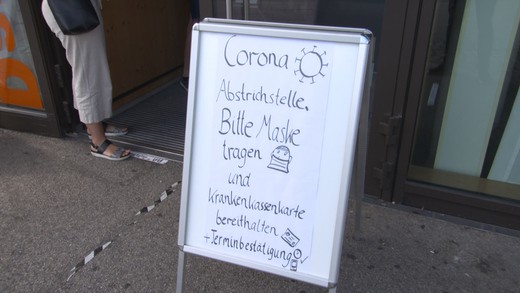 Corona
Abstrichstelle.
Bitte Maske
tragen
und
Krankenkassenkarte
bereithalten
+Terminbestätigung